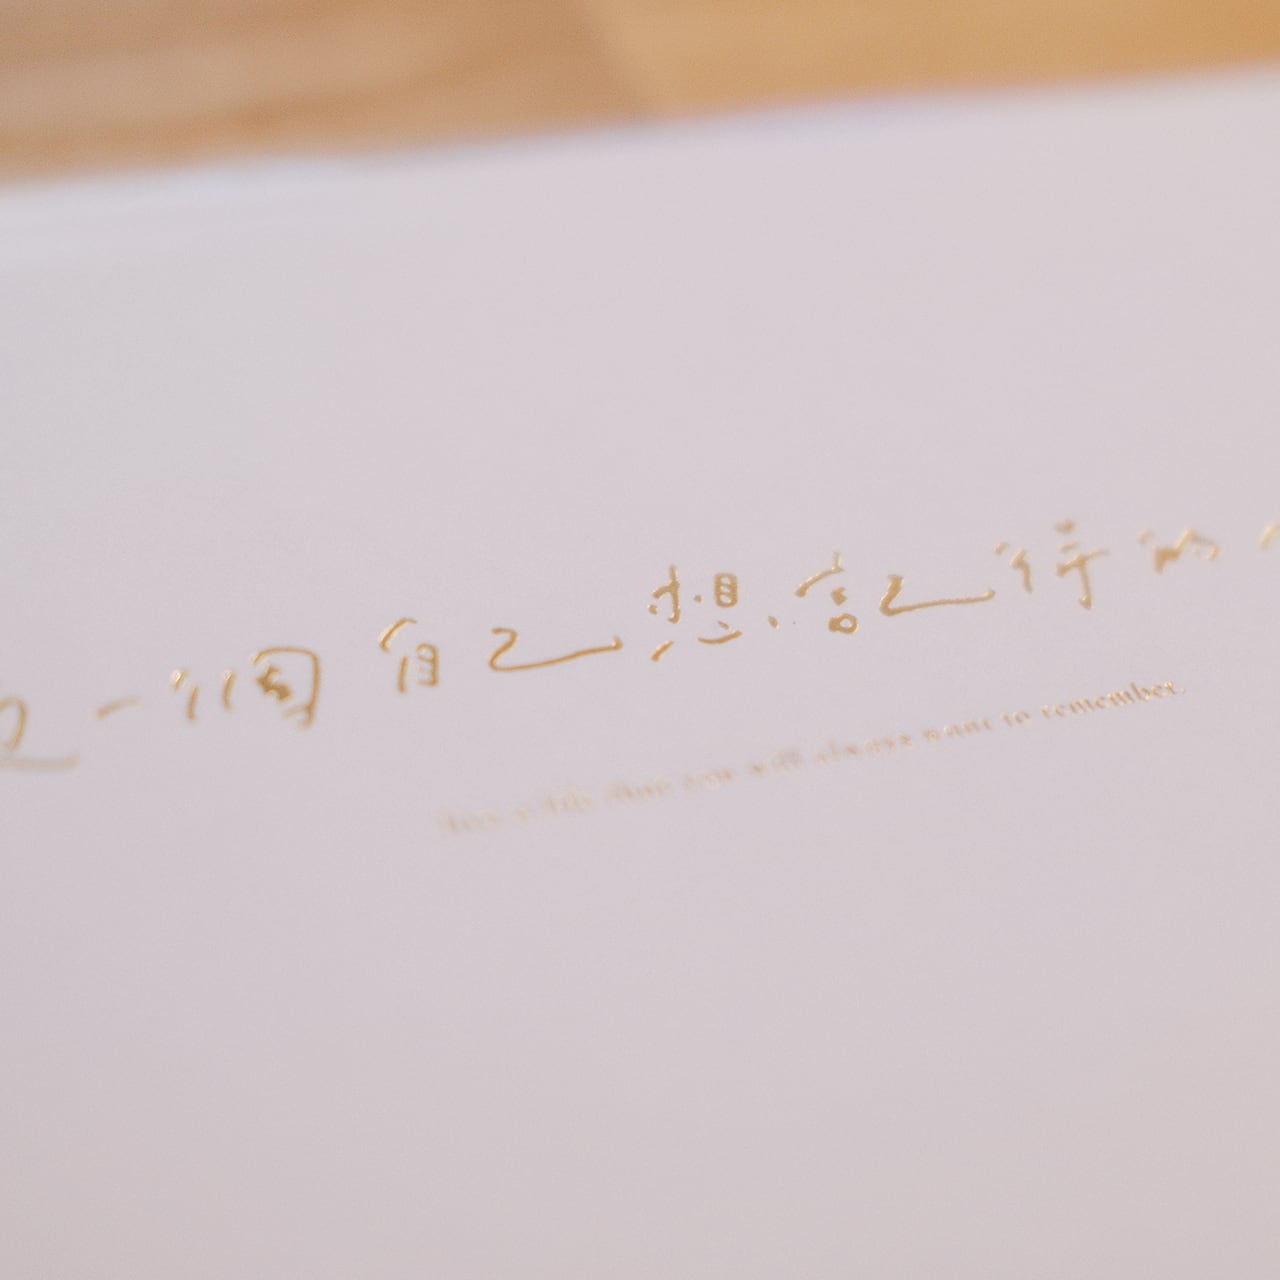 一個自己想記得的
life that one will always want to remember.